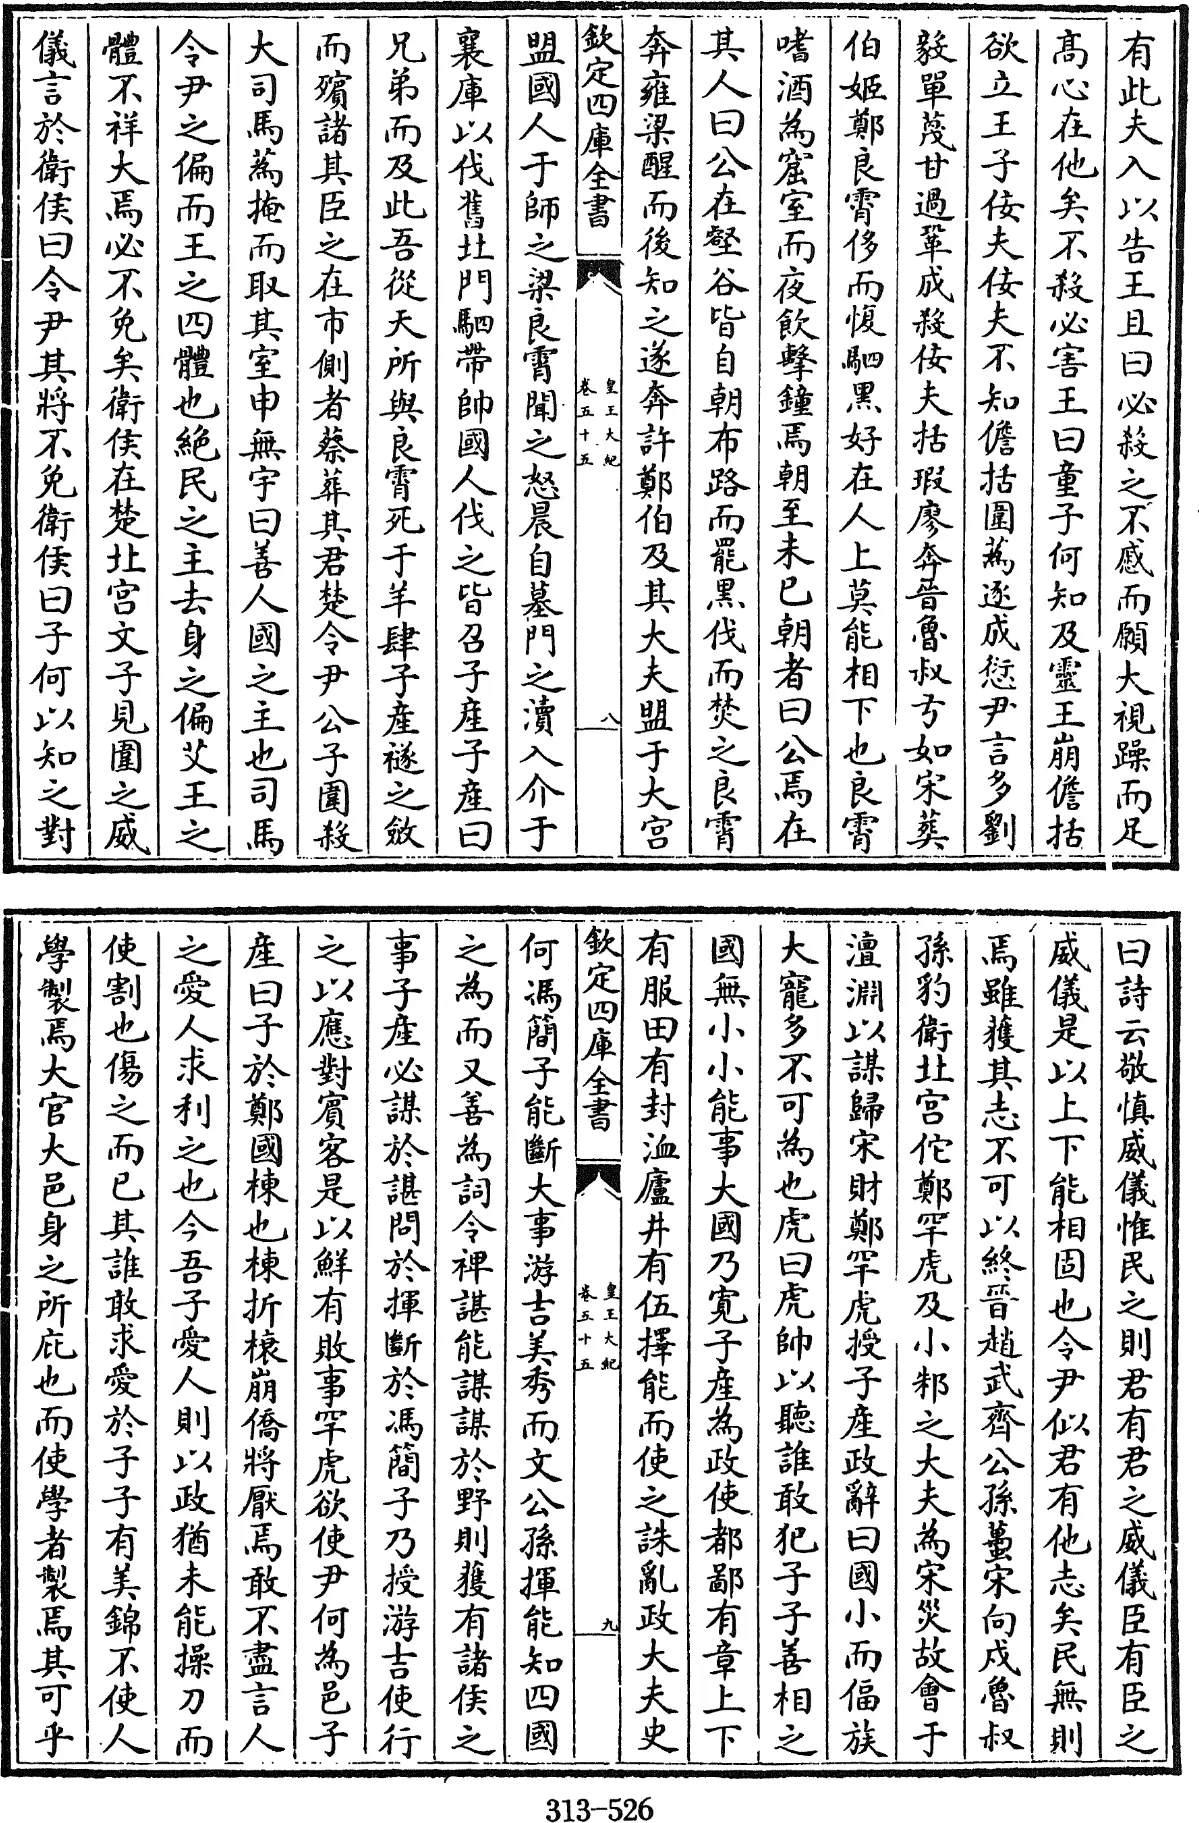 有此夫入以告王且曰必殺之不慼而願大視躁而足
髙心在他矣不殺必害王曰童子何知及靈王崩儋括
欲立王子佞夫佞夫不知儋括圍蒍逐成愆尹言多劉
毅單蔑甘過鞏成殺佞夫括瑕廖奔晉魯叔弓如宋葬
伯姬鄭良霄侈而愎駟黑好在人上莫能相下也良霄
嗜酒為窟室而夜飲擊鐘焉朝至未已朝者曰公焉在
其人曰公在壑谷皆自朝布路而罷黑伐而焚之良霄
奔雍梁醒而後知之遂奔許鄭伯及其大夫盟于大宫
欽定四庫全書
皇王大紀
卷五十五
八
盟國人于師之梁良霄聞之怒晨自墓門之瀆入介于
襄庫以伐舊北門駟帶帥國人伐之皆召子産子産曰
兄弟而及此吾從天所與良霄死于羊肆子産襚之斂
而殯諸其臣之在市側者蔡葬其君楚令尹公子圍殺
大司馬蒍掩而取其室申無宇曰善人國之主也司馬
令尹之偏而王之四體也絶民之主去身之偏艾王之
體不祥大焉必不免矣衛侯在楚北宫文子見圍之威
儀言於衛侯曰令尹其將不免衛侯曰子何以知之對
曰詩云敬慎威儀惟民之則君有君之威儀臣有臣之
威儀是以上下能相固也令尹似君有他志矣民無則
焉雖獲其志不可以終晉趙武齊公孫蠆宋向戍魯叔
孫豹衛北宫佗鄭罕虎及小邾之大夫為宋災故會于
澶淵以謀歸宋財鄭罕虎授子産政辭曰國小而偪族
大寵多不可為也虎曰虎帥以聽誰敢犯子子善相之
國無小小能事大國乃寛子産為政使都鄙有章上下
有服田有封洫廬井有伍擇能而使之誅亂政大夫史
欽定四庫全書
皇王大紀
卷五十五
九
何馮簡子能斷大事游吉美秀而文公孫揮能知四國
之為而又善為詞令裨諶能謀謀於野則獲有諸侯之
事子産必謀於諶問於揮斷於馮簡子乃授游吉使行
之以應對賓客是以鮮有敗事罕虎欲使尹何為邑子
産曰子於鄭國棟也棟折榱崩僑將厭焉敢不盡言人
之愛人求利之也今吾子愛人則以政猶未能操刀而
使割也傷之而已其誰敢求愛於子子有美錦不使人
學製焉大官大邑身之所庇也而使學者製焉其可乎
313-526